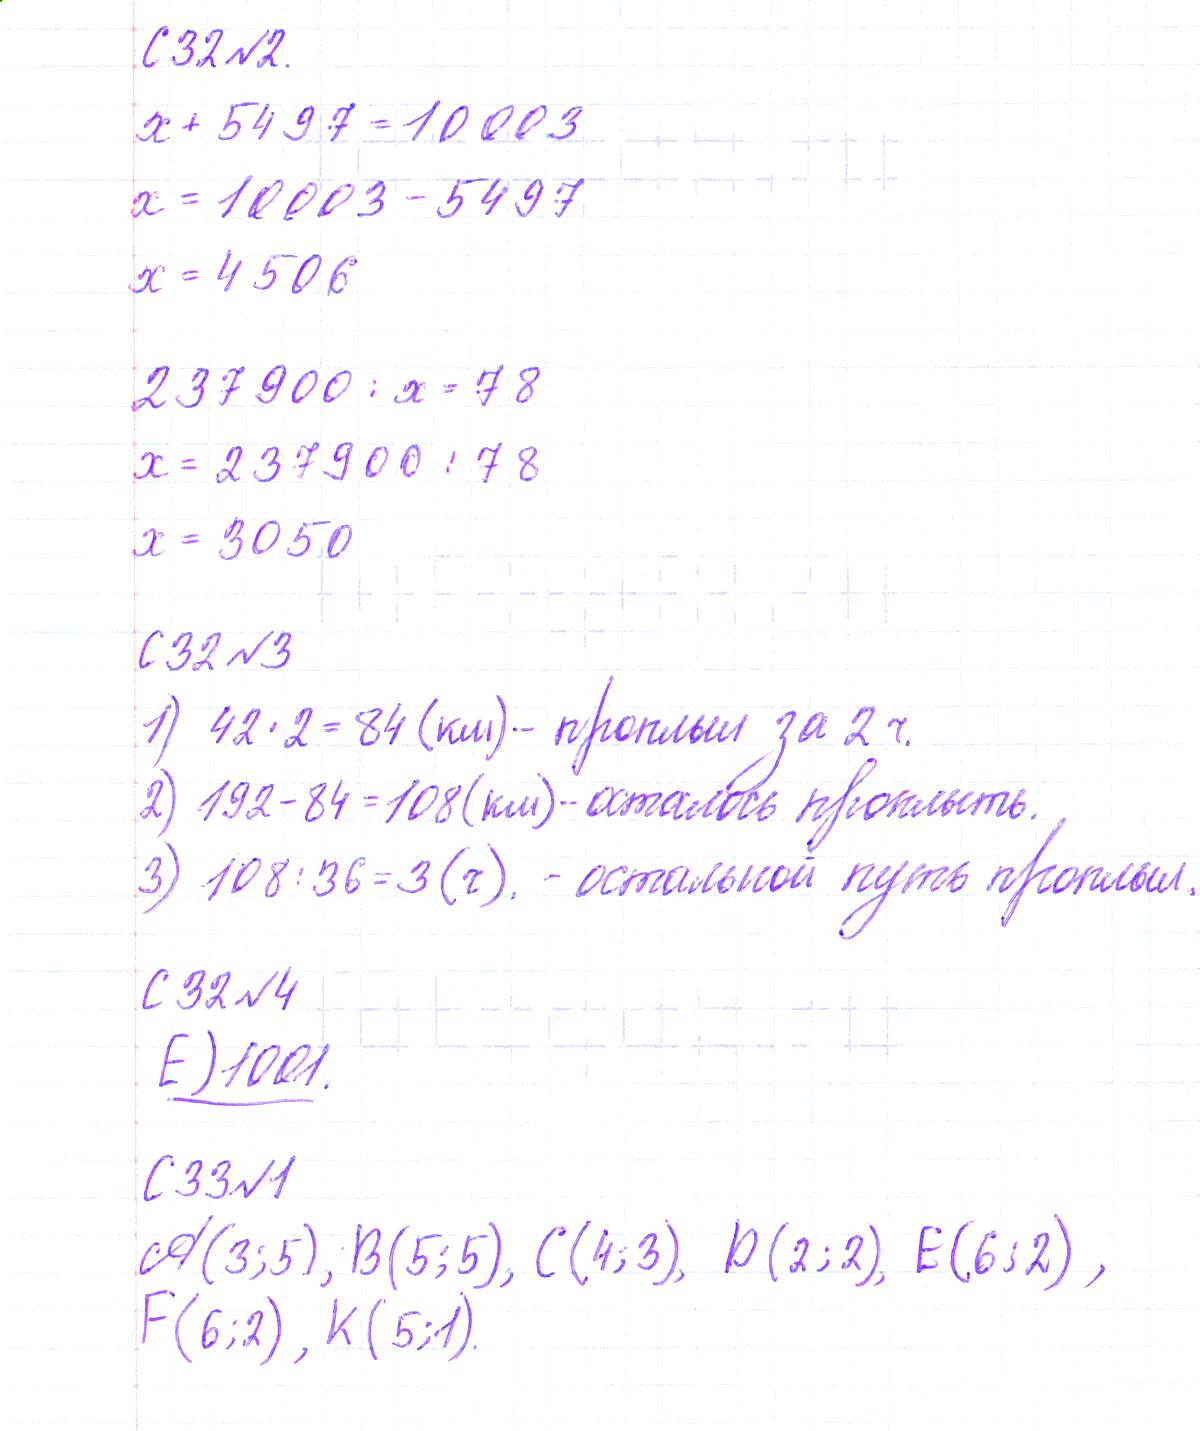 С 32 №2.
x + 5497 = 10003
x = 10003 - 5497
x = 4506
237900 : x = 78
x = 237900 : 78
x = 3050
С 32 №3
1) 42 · 2 = 84 (км) - проплыл за 2 ч.
2) 192 - 84 = 108 (км) - осталось проплыть.
3) 108 : 36 = 3 (ч). - остальной путь проплыл.
С 32 №4
Е) 1001.
С 33 №1
A(3;5), B(5;5), C(4;3), D(2;2), E(6;2),
F(6;2), K(5;1).